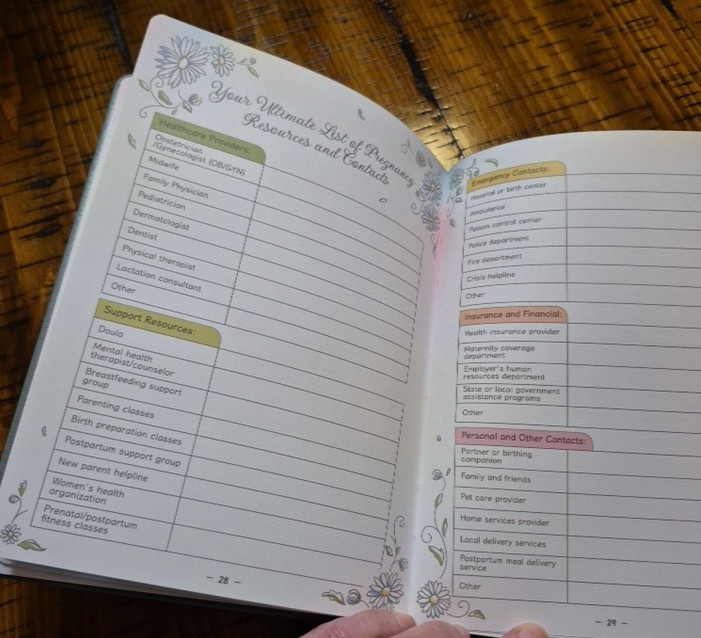 Your Ultimate List of Pregnancy
Resources and Contacts
Healthcare Providers:
Obstetrician
/Gynecologist (OB/GYN)
Midwife
Family Physician
Pediatrician
Dermatologist
Dentist
Physical therapist
Lactation consultant
Other
Support Resources:
Doula
Mental health
therapist/counselor
Breastfeeding support
group
Parenting classes
Birth preparation classes
Postpartum support group
New parent helpline
Women's health
organization
Prenatal/postpartum
fitness classes
- 28 -
Emergency Contacts:
Hospital or birth center
Ambulance
Poison control center
Police department
Fire department
Crisis helpline
Other
Insurance and Financial:
Health insurance provider
Maternity coverage
department
Employer's human
resources department
State or local government
assistance programs
Other
Personal and Other Contacts:
Partner or birthing
companion
Family and friends
Pet care provider
Home services provider
Local delivery services
Postpartum meal delivery
service
Other
- 29 -